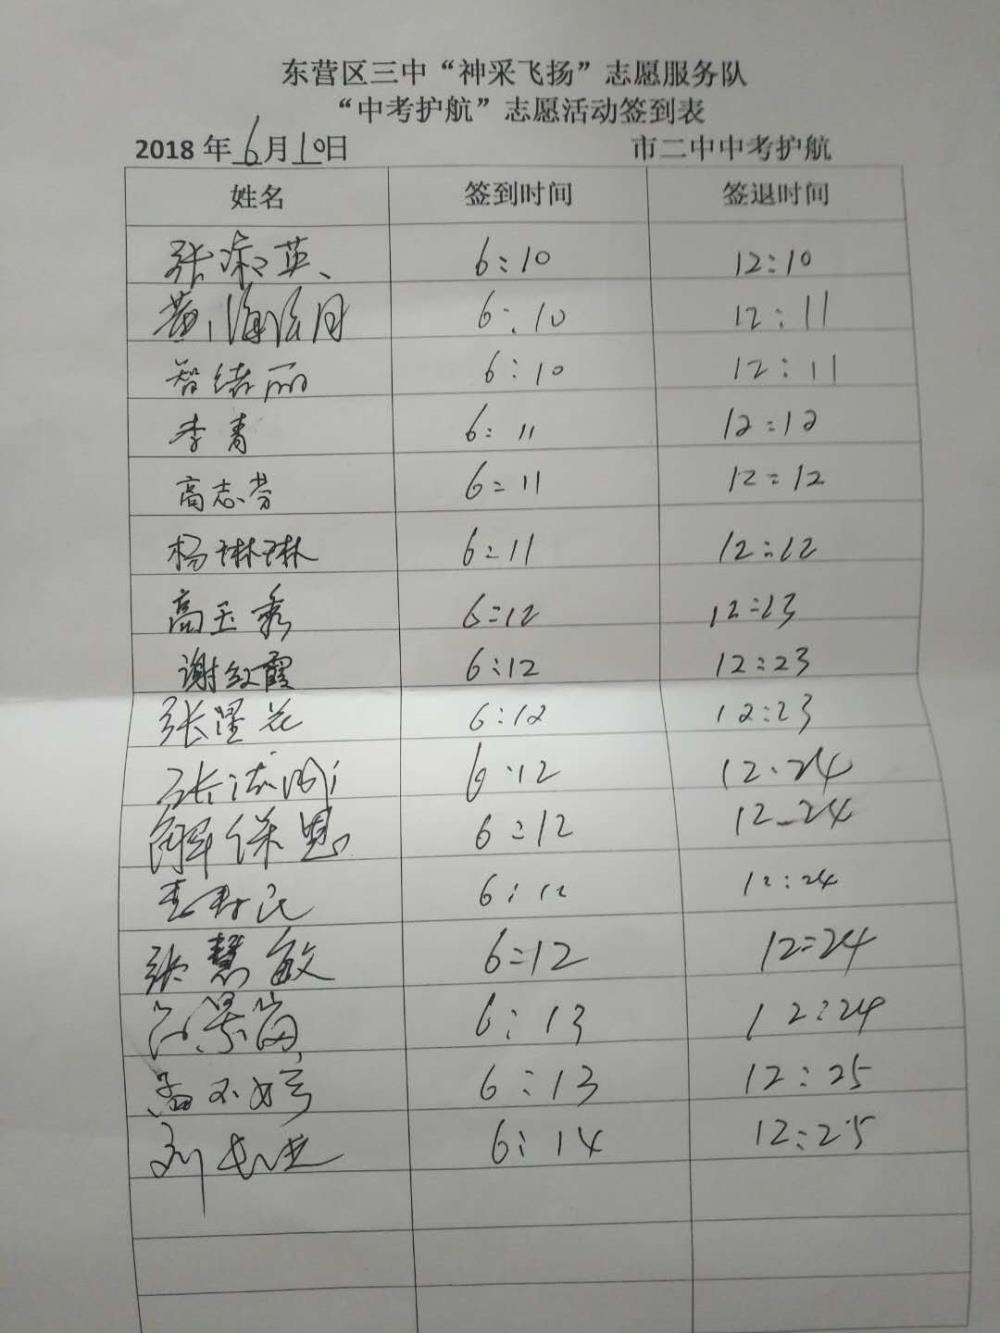 东营区三中“神采飞扬”志愿服务队
“中考护航”志愿活动签到表
2018年6月10日 市二中中考护航
姓名 签到时间 签退时间
张淑英、 6:10 12:10
黄海月 6:10 12:11
智绪丽 6:10 12:11
李青 6:11 12:12
高志芬 6:11 12:12
杨琳琳 6:11 12:12
高玉秀 6:12 12:23
谢红霞 6:12 12:23
张星花 6:12 12:23
张 6:12 12:24
解保恩 6:12 12:24
6:12 12:24
张慧敏 6:12 12:24
6:13 12:24
孟 婷 6:13 12:25
刘 6:14 12:25